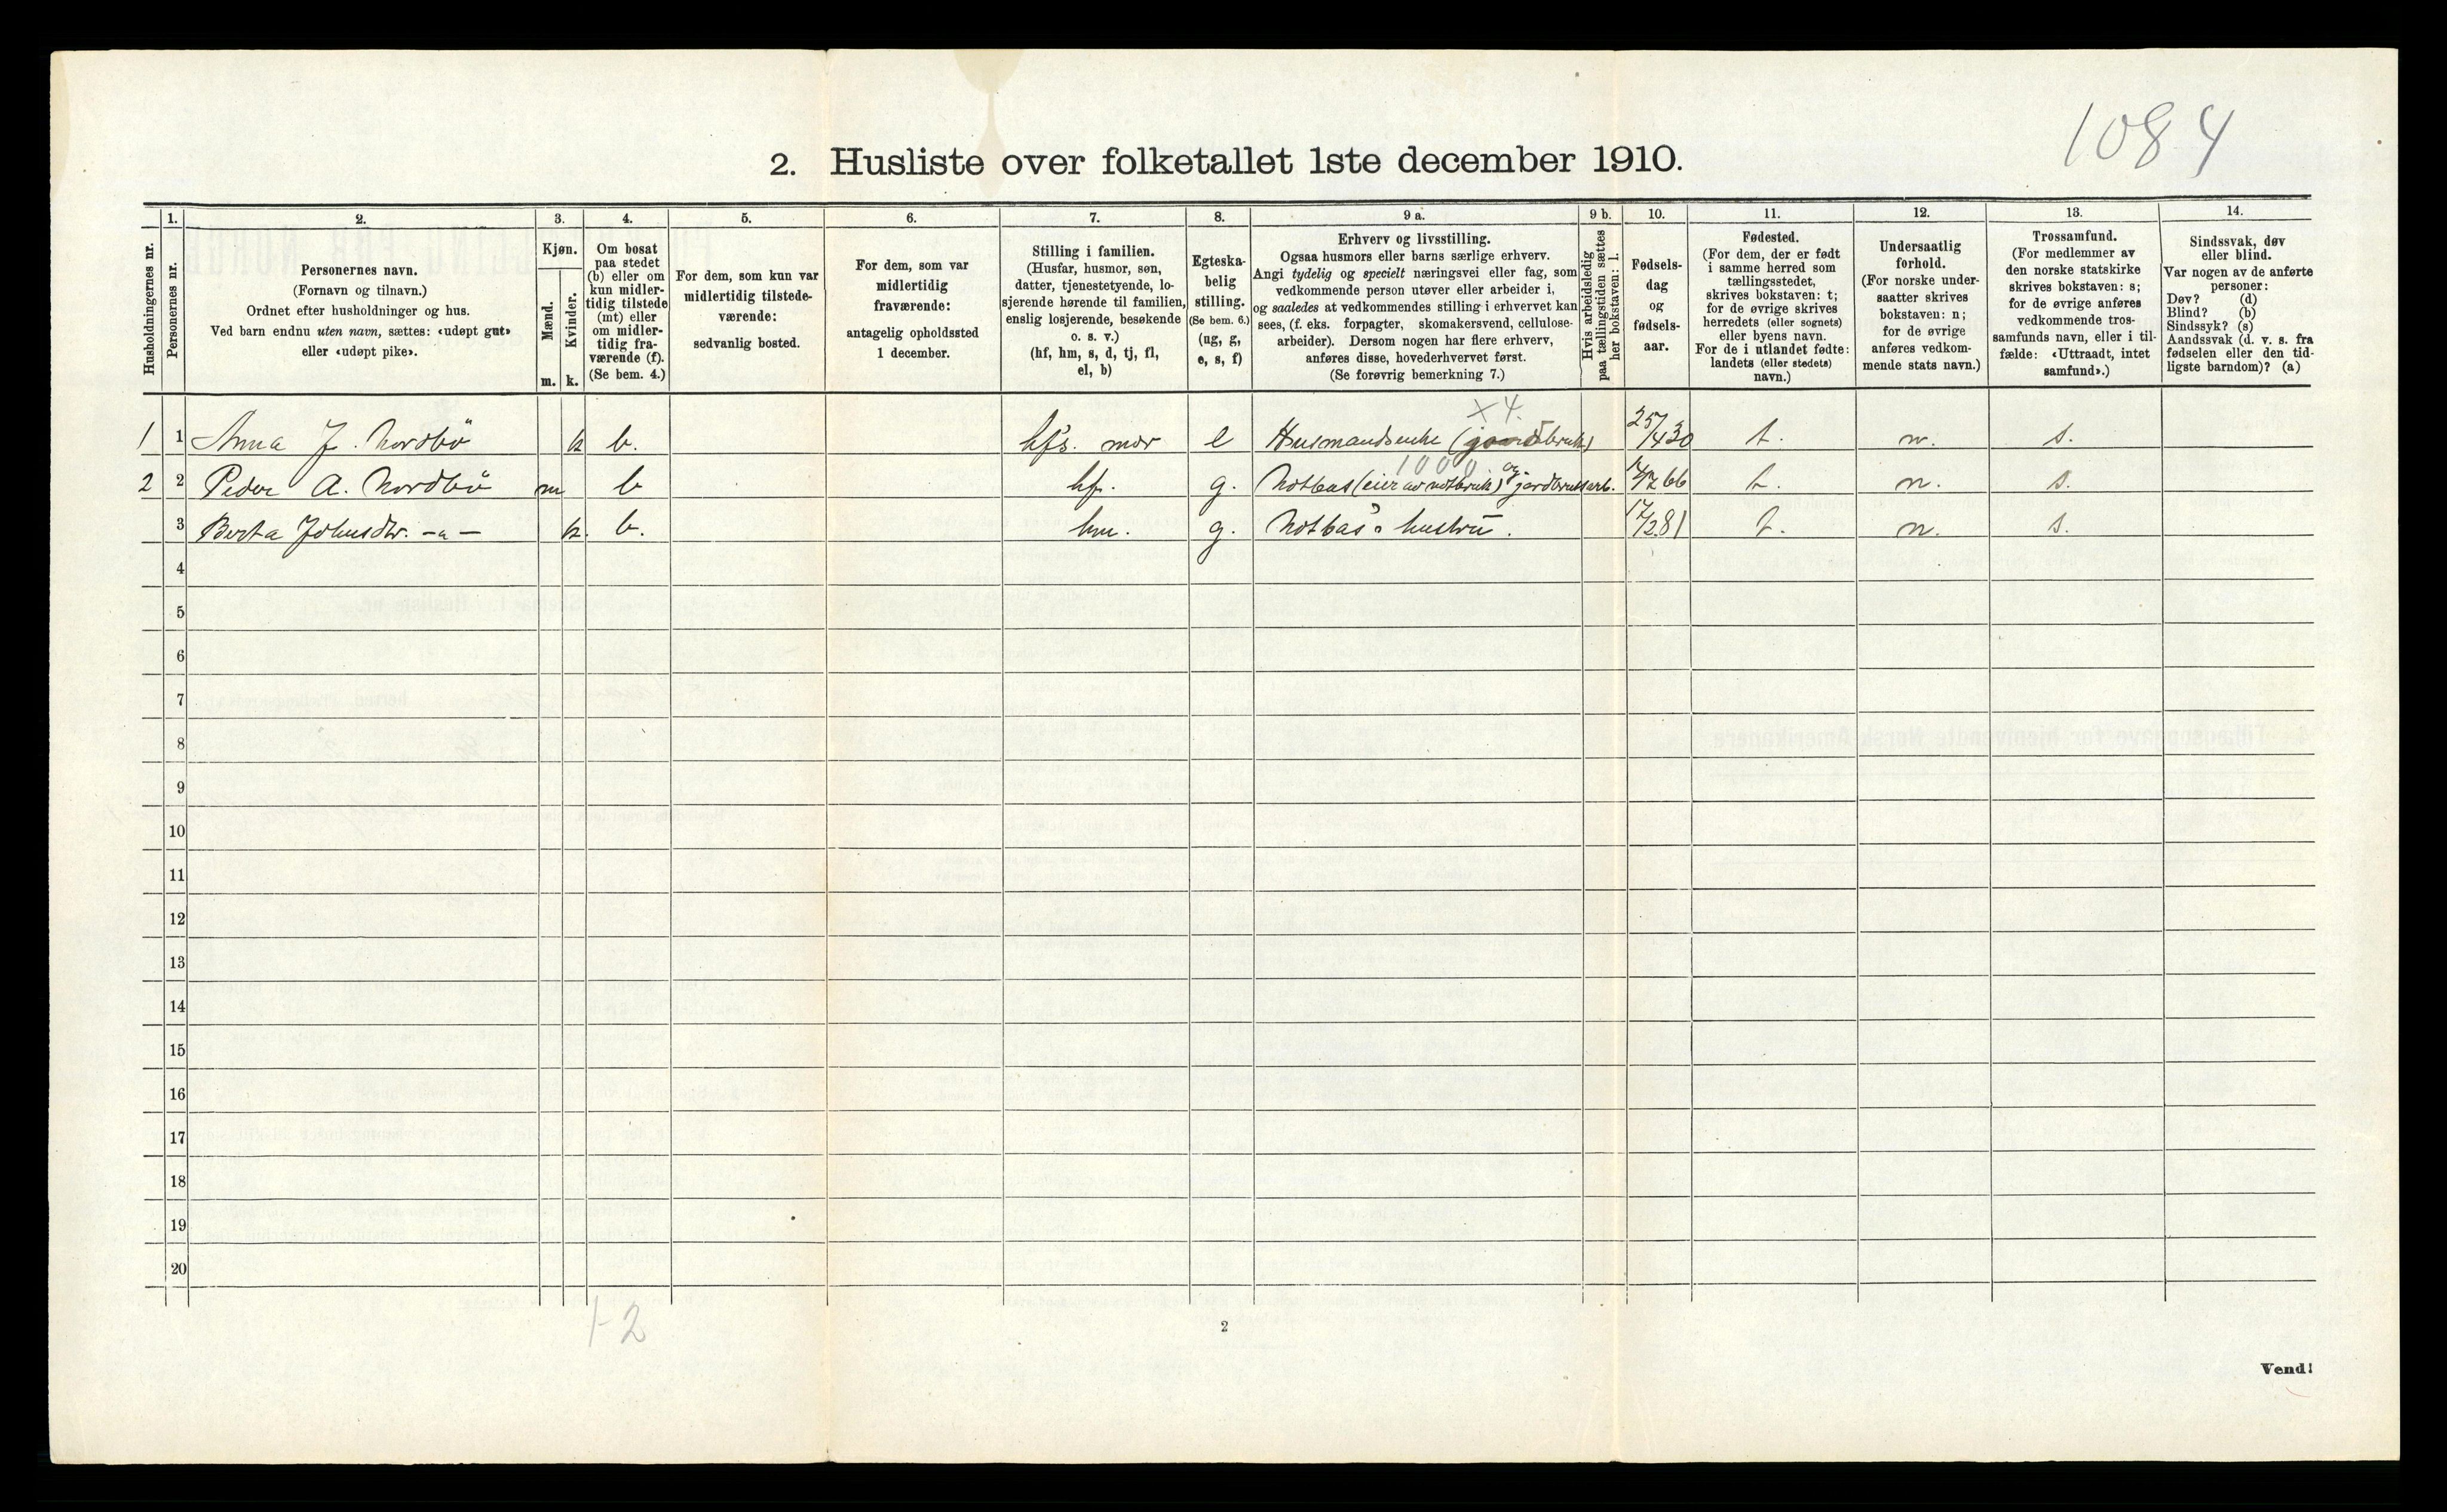 1084
2. Husliste over folketallet 1ste december 1910.
Husholdningernes nr.
1.
Personernes nr.
2.
Personernes navn.
(Fornavn og tilnavn.)
Ordnet efter husholdninger og hus.
Ved barn endnu uten navn, sættes: «udøpt gut»
eller «udøpt pike».
3.
Kjøn.
Mænd.
Kvinder.
m. k.
4.
Om bosat
paa stedet
(b) eller om
kun midler-
tidig tilstede
(mt) eller
om midler-
tidig fra-
værende (f).
(Se bem. 4.)
5.
For dem, som kun var
midlertidig tilstede-
værende:
sedvanlig bosted.
6.
For dem, som var
midlertidig
fraværende:
antagelig opholdssted
1 december.
7.
Stilling i familien.
(Husfar, husmor, søn,
datter, tjenestetyende, lo-
sjerende hørende til familien,
enslig losjerende, besøkende
o. s. v.)
(hf, hm, s, d, tj, fl,
el, b)
8.
Egteska-
belig
stilling.
(Se bem. 6.)
(ug, g,
e, s, f)
9 a.
Erhverv og livsstilling.
Ogsaa husmors eller barns særlige erhverv.
Angi tydelig og specielt næringsvei eller fag, som
vedkommende person utøver eller arbeider i,
og saaledes at vedkommendes stilling i erhvervet kan
sees, (f. eks. forpagter, skomakersvend, cellulose-
arbeider). Dersom nogen har flere erhverv,
anføres disse, hovederhvervet først.
(Se forøvrig bemerkning 7.)
9 b.
Hvis arbeidsledig
paa tællingstiden sættes
her bokstaven: l.
10.
Fødsels-
dag
og
fødsels-
aar.
11.
Fødested.
(For dem, der er født
i samme herred som
tællingsstedet,
skrives bokstaven: t;
for de øvrige skrives
herredets (eller sognets)
eller byens navn.
For de i utlandet fødte:
landets (eller stedets)
navn.)
12.
Undersaatlig
forhold.
(For norske under-
saatter skrives
bokstaven: n;
for de øvrige
anføres vedkom-
mende stats navn.)
13.
Trossamfund.
(For medlemmer av
den norske statskirke
skrives bokstaven: s;
for de øvrige anføres
vedkommende tros-
samfunds navn, eller i til-
fælde: «Uttraadt, intet
samfund».)
14.
Sindssvak, døv
eller blind.
Var nogen av de anførte
personer:
Døv? (d)
Blind? (b)
Sindssyk? (s)
Aandssvak (d. v. s. fra
fødselen eller den tid-
ligste barndom)? (a)
X 4.
1 1 Anna J. Nordbö k b. hf's. mor e Husmandsenke (jordbruk) 25/4 30 t. n. s.
1000
2 2 Peder A. Nordbö m b hf. g. Notbas (eier av notbruk) og jordbruksarb. 66 t. n. s.
3 Berta Johnsdtr. -"- k. b. hm. g. Notbas's hustru. 81 t. n. s.
4
5
6
7
8
9
10
11
12
13
14
15
16
17
18
19
20
1-2
2
Vend!